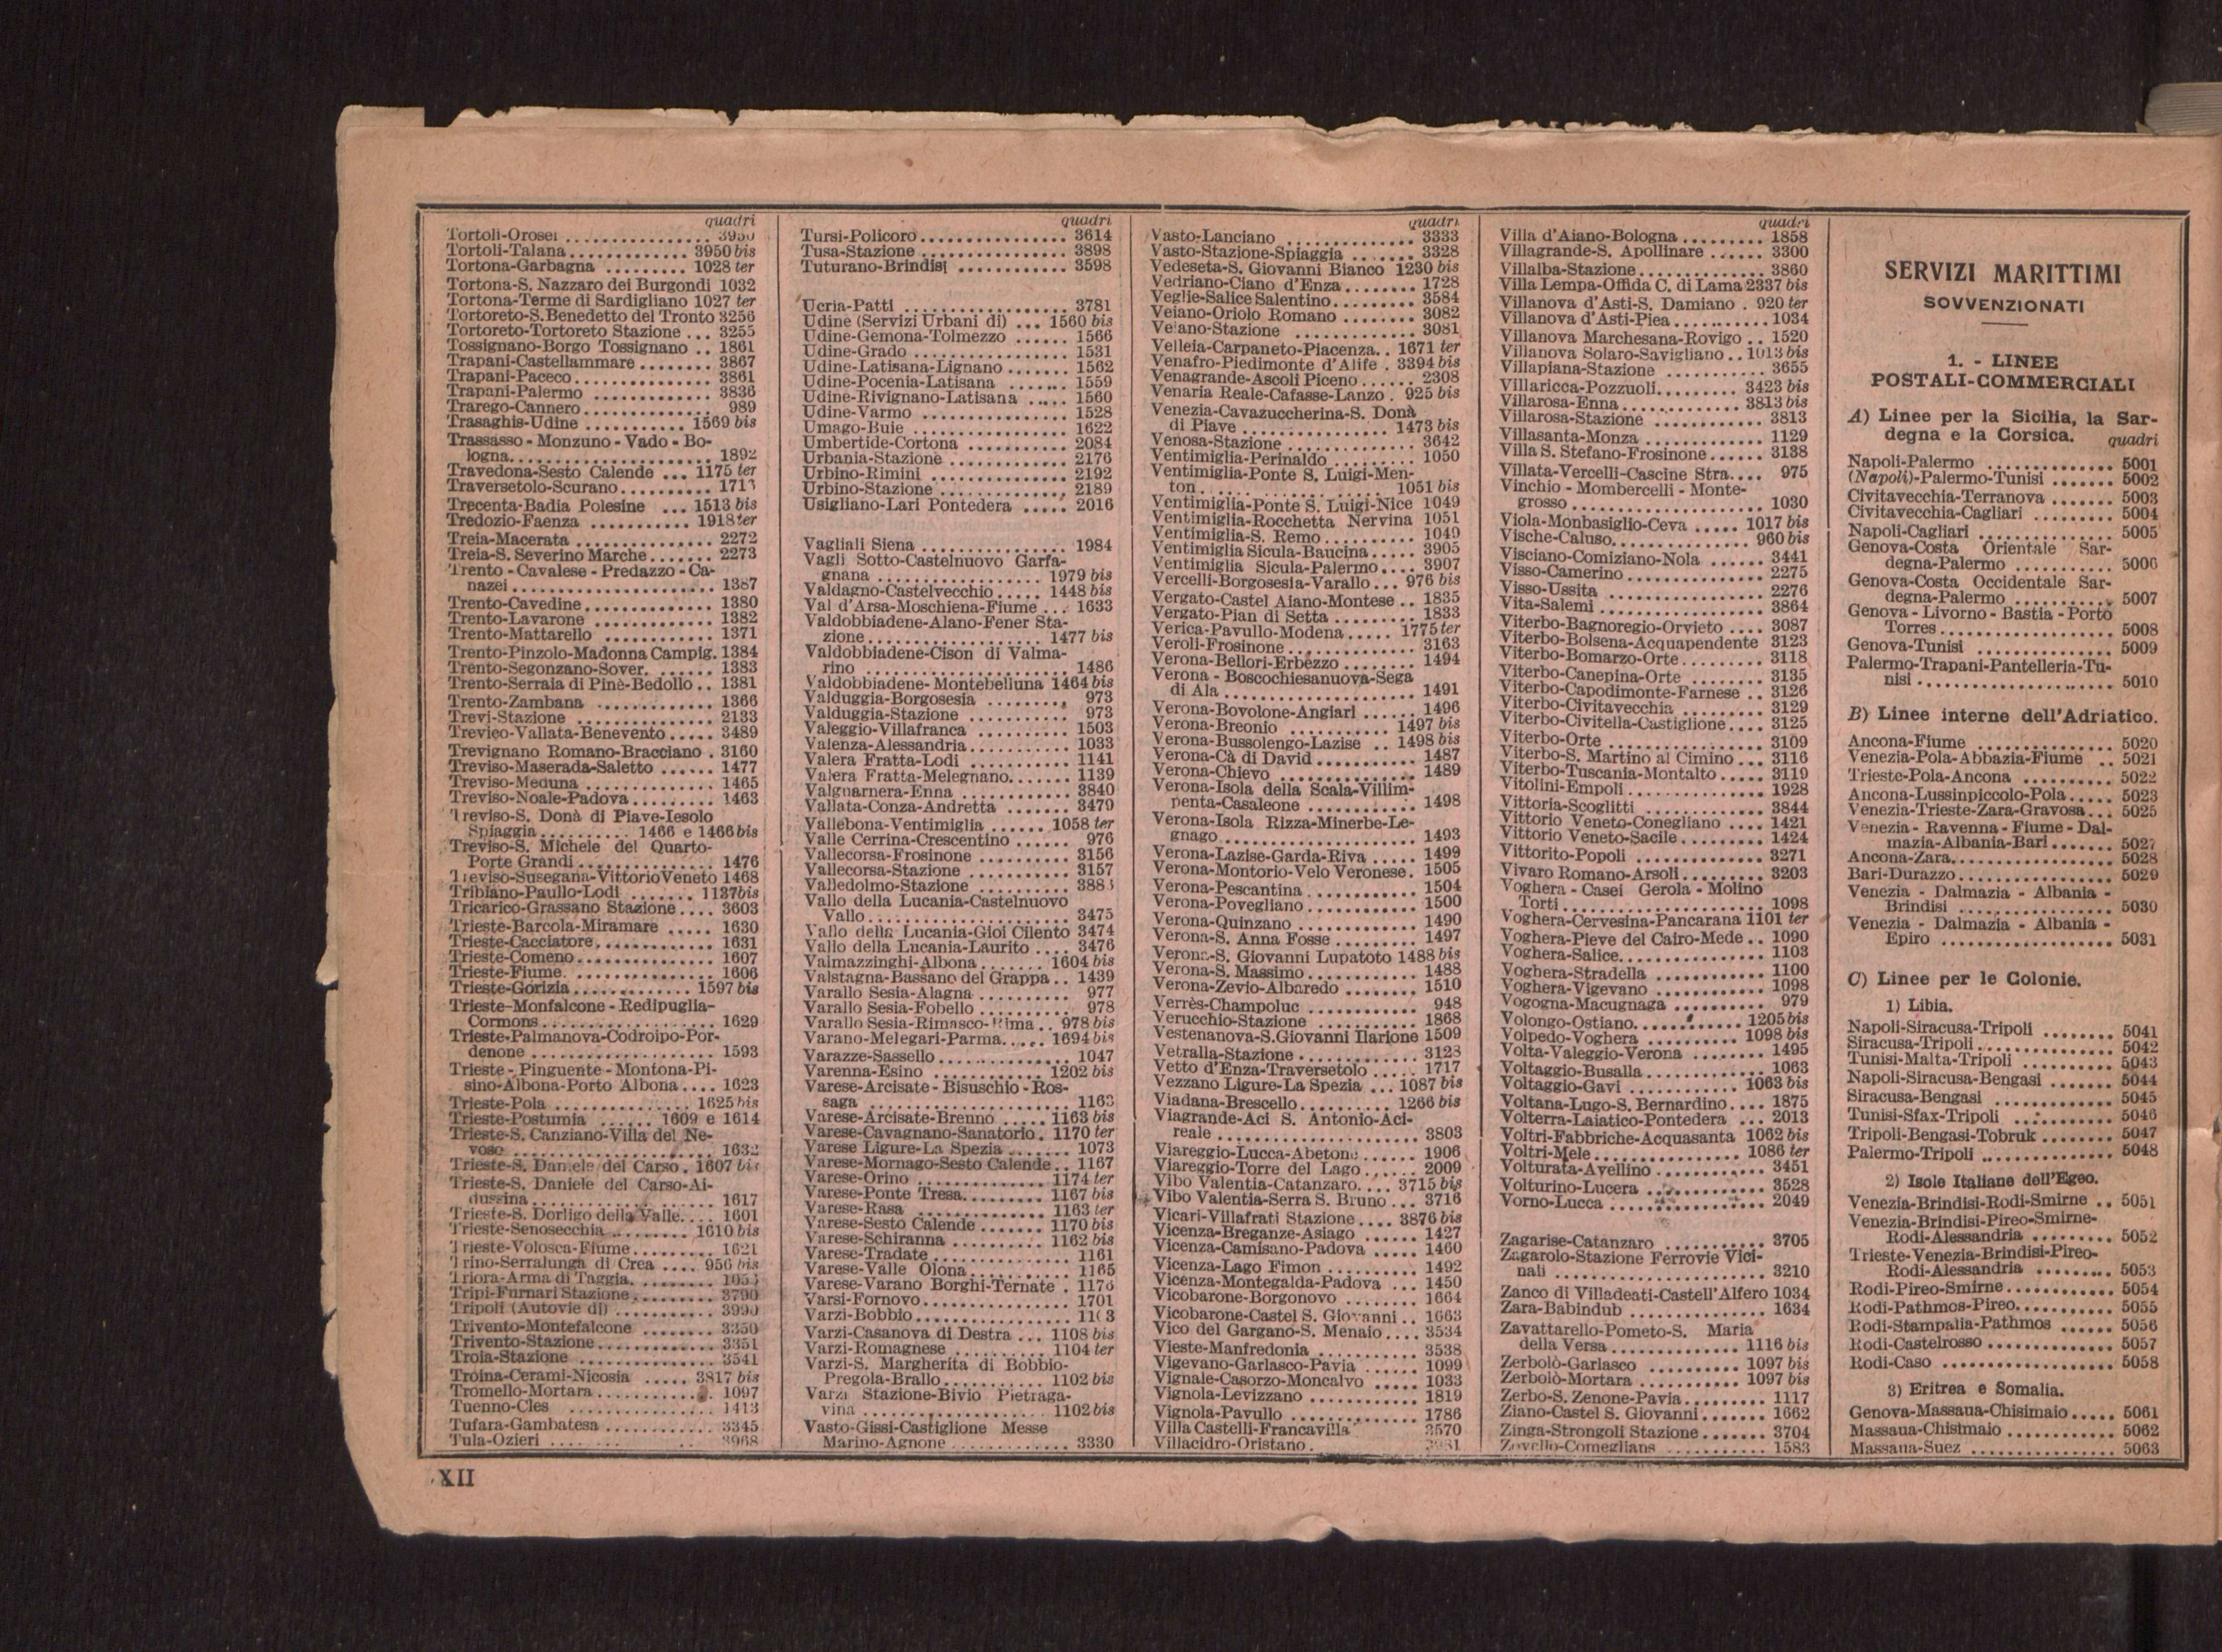 quadri
Tortoli-Orosei ................ 3950
Tortoli-Talana ............. 3950 bis
Tortona-Garbagna ......... 1028 ter
Tortona-S. Nazzaro dei Burgondi 1032
Tortona-Terme di Sardigliano 1027 ter
Tortoreto-S. Benedetto del Tronto 3256
Tortoreto-Tortoreto Stazione ... 3255
Tossignano-Borgo Tossignano .. 1861
Trapani-Castellammare ........ 3867
Trapani-Paceco ............... 3861
Trapani-Palermo .............. 3836
Trarego-Cannero .............. 989
Trasaghis-Udine ........... 1569 bis
Trassasso - Monzuno - Vado - Bo-
logna....................... 1892
Travedona-Sesto Calende ... 1175 ter
Traversetolo-Scurano.......... 1713
Trecenta-Badia Polesine ... 1513 bis
Tredozio-Faenza ........... 1918 ter
Treia-Macerata ............... 2272
Treia-S. Severino Marche....... 2273
Trento - Cavalese - Predazzo - Ca-
nazei ....................... 1387
Trento-Cavedine.............. 1380
Trento-Lavarone .............. 1382
Trento-Mattarello ............ 1371
Trento-Pinzolo-Madonna Campig. 1384
Trento-Segonzano-Sover. ...... 1383
Trento-Serraia di Pinè-Bedollo .. 1381
Trento-Zambana ............. 1366
Trevi-Stazione ............... 2133
Trevico-Vallata-Benevento ..... 3489
Trevignano Romano-Bracciano . 3160
Treviso-Maserada-Saletto ...... 1477
Treviso-Meduna .............. 1465
Treviso-Noale-Padova ......... 1463
Treviso-S. Donà di Piave-Iesolo
Spiaggia .......... 1466 e 1466 bis
Treviso-S. Michele del Quarto-
Porte Grandi ............... 1476
Treviso-Susegana-Vittorio Veneto 1468
Tribiano-Paullo-Lodi ....... 1137 bis
Tricarico-Grassano Stazione .... 3603
Trieste-Barcola-Miramare ..... 1630
Trieste-Cacciatore............. 1631
Trieste-Comeno............... 1607
Trieste-Fiume. ............... 1606
Trieste-Gorizia ............. 1597 bis
Trieste-Monfalcone - Redipuglia-
Cormons ................... 1629
Trieste-Palmanova-Codroipo-Por-
denone ..................... 1593
Trieste - Pinguente - Montona-Pi-
sino-Albona-Porto Albona .... 1623
Trieste-Pola ............... 1625 bis
Trieste-Postumia ...... 1609 e 1614
Trieste-S. Canziano-Villa del Ne-
voso ....................... 1632
Trieste-S. Daniele del Carso . 1607 bis
Trieste-S. Daniele del Carso-Ai-
dussina ..................... 1617
Trieste-S. Dorligo della Valle.... 1601
Trieste-Senosecchia ......... 1610 bis
Trieste-Volosca-Fiume......... 1621
Trino-Serralunga di Crea .... 956 bis
Triora-Arma di Taggia. ........
Tripi-Furnari Stazione......... 3790
Tripoli (Autovie di) ........... 3990
Trivento-Montefalcone ........ 3350
Trivento-Stazione............. 3351
Troia-Stazione ............... 3541
Troina-Cerami-Nicosia ..... 3817 bis
Tromello-Mortara ............ 1097
Tuenno-Cles ................ 1413
Tufara-Gambatesa ............ 3345
Tula-Ozieri ........ 3968
quadri
Tursi-Policoro ................ 3614
Tusa-Stazione ................ 3898
Tuturano-Brindisi ............ 3598
Ucria-Patti .................. 3781
Udine (Servizi Urbani di) ... 1560 bis
Udine-Gemona-Tolmezzo ...... 1566
Udine-Grado ................. 1531
Udine-Latisana-Lignano ....... 1562
Udine-Pocenia-Latisana ....... 1559
Udine-Rivignano-Latisana ..... 1560
Udine-Varmo ................ 1528
Umago-Buie ................. 1622
Umbertide-Cortona ........... 2084
Urbania-Stazione ............. 2176
Urbino-Rimini ............... 2192
Urbino-Stazione .............. 2189
Usigliano-Lari Pontedera ..... 2016
Vagliali Siena ................ 1984
Vagli Sotto-Castelnuovo Garfa-
gnana .................. 1979 bis
Valdagno-Castelvecchio ..... 1448 bis
Val d'Arsa-Moschiena-Fiume ... 1633
Valdobbiadene-Alano-Fener Sta-
zione................... 1477 bis
Valdobbiadene-Cison di Valma-
rino ....................... 1486
Valdobbiadene-Montebelluna 1464 bis
Valduggia-Borgosesia ......... 973
Valduggia-Stazione ........... 973
Valeggio-Villafranca .......... 1503
Valenza-Alessandria........... 1033
Valera Fratta-Lodi ........... 1141
Valera Fratta-Melegnano....... 1139
Valguarnera-Enna ............ 3840
Vallata-Conza-Andretta ....... 3479
Vallebona-Ventimiglia ...... 1058 ter
Valle Cerrina-Crescentino ...... 976
Vallecorsa-Frosinone .......... 3156
Vallecorsa-Stazione ........... 3157
Valledolmo-Stazione ..........
Vallo della Lucania-Castelnuovo
Vallo ....................... 3475
Vallo della Lucania-Gioi Cilento 3474
Vallo della Lucania-Laurito .... 3476
Valmazzinghi-Albona ....... 1604 bis
Valstagna-Bassano del Grappa .. 1439
Varallo Sesia-Alagna .......... 977
Varallo Sesia-Fobello .......... 978
Varallo Sesia-Rimasco-Rima .. 978 bis
Varano-Melegari-Parma..... 1694 bis
Varazze-Sassello .............. 1047
Varenna-Esino ............ 1202 bis
Varese-Arcisate - Bisuschio - Ros-
saga ....................... 1163
Varese-Arcisate-Brenno ..... 1163 bis
Varese-Cavagnano-Sanatorio . 1170 ter
Varese Ligure-La Spezia ....... 1073
Varese-Mornago-Sesto Calende .. 1167
Varese-Orino .............. 1174 ter
Varese-Ponte Tresa......... 1167 bis
Varese-Rasa .............. 1163 ter
Varese-Sesto Calende ....... 1170 bis
Varese-Schiranna .......... 1162 bis
Varese-Tradate ............... 1161
Varese-Valle Olona ........... 1165
Varese-Varano Borghi-Ternate . 1176
Varsi-Fornovo................ 1701
Varzi-Bobbio.................
Varzi-Casanova di Destra ... 1108 bis
Varzi-Romagnese .......... 1104 ter
Varzi-S. Margherita di Bobbio-
Pregola-Brallo ............ 1102 bis
Varzi Stazione-Bivio Pietraga-
vina ..................... 1102 bis
Vasto-Gissi-Castiglione Messe
Marino-Agnone ............. 3330
quadri
Vasto-Lanciano .............. 3333
Vasto-Stazione-Spiaggia ....... 3328
Vedeseta-S. Giovanni Bianco 1230 bis
Vedriano-Ciano d'Enza ........ 1728
Veglie-Salice Salentino ......... 3584
Veiano-Oriolo Romano ........ 3082
Veiano-Stazione ............. 3081
Velleia-Carpaneto-Piacenza.. 1671 ter
Venafro-Piedimonte d'Alife . 3394 bis
Venagrande-Ascoli Piceno ...... 2308
Venaria Reale-Cafasse-Lanzo . 925 bis
Venezia-Cavazuccherina-S. Donà
di Piave ................ 1473 bis
Venosa-Stazione .............. 3642
Ventimiglia-Perinaldo ......... 1050
Ventimiglia-Ponte S. Luigi-Men-
ton ..................... 1051 bis
Ventimiglia-Ponte S. Luigi-Nice 1049
Ventimiglia-Rocchetta Nervina 1051
Ventimiglia-S. Remo .......... 1049
Ventimiglia Sicula-Baucina..... 3905
Ventimiglia Sicula-Palermo .... 3907
Vercelli-Borgosesia-Varallo ... 976 bis
Vergato-Castel Aiano-Montese .. 1835
Vergato-Pian di Setta ......... 1833
Verica-Pavullo-Modena ..... 1775 ter
Veroli-Frosinone .............. 3163
Verona-Bellori-Erbezzo ........ 1494
Verona - Boscochiesanuova-Sega
di Ala ..................... 1491
Verona-Bovolone-Angiari ...... 1496
Verona-Breonio ........... 1497 bis
Verona-Bussolengo-Lazise .. 1498 bis
Verona-Cà di David ........... 1487
Verona-Chievo ............... 1489
Verona-Isola della Scala-Villim-
penta-Casaleone ............ 1498
Verona-Isola Rizza-Minerbe-Le-
gnago...................... 1493
Verona-Lazise-Garda-Riva ..... 1499
Verona-Montorio-Velo Veronese. 1505
Verona-Pescantina ............ 1504
Verona-Povegliano ............ 1500
Verona-Quinzano ............. 1490
Verona-S. Anna Fosse ......... 1497
Verona-S. Giovanni Lupatoto 1488 bis
Verona-S. Massimo ............ 1488
Verona-Zevio-Albaredo ........ 1510
Verrès-Champoluc ............ 948
Verucchio-Stazione ........... 1868
Vestenanova-S. Giovanni Ilarione 1509
Vetralla-Stazione ............. 3123
Vetto d'Enza-Traversetolo ..... 1717
Vezzano Ligure-La Spezia ... 1087 bis
Viadana-Brescello .......... 1266 bis
Viagrande-Aci S. Antonio-Aci-
reale ...................... 3803
Viareggio-Lucca-Abetone ...... 1906
Viareggio-Torre del Lago ...... 2009
Vibo Valentia-Catanzaro. ... 3715 bis
Vibo Valentia-Serra S. Bruno ... 3716
Vicari-Villafrati Stazione .... 3876 bis
Vicenza-Breganze-Asiago ...... 1427
Vicenza-Camisano-Padova ..... 1460
Vicenza-Lago Fimon .......... 1492
Vicenza-Montegalda-Padova ... 1450
Vicobarone-Borgonovo ........ 1664
Vicobarone-Castel S. Giovanni .. 1663
Vico del Gargano-S. Menaio .... 3534
Vieste-Manfredonia ........... 3538
Vigevano-Garlasco-Pavia ...... 1099
Vignale-Casorzo-Moncalvo ..... 1033
Vignola-Levizzano ............ 1819
Vignola-Pavullo .............. 1786
Villa Castelli-Francavilla 3570
Villacidro-Oristano .
quadri
Villa d'Aiano-Bologna ......... 1858
Villagrande-S. Apollinare ...... 3300
Villalba-Stazione .............. 3860
Villa Lempa-Offida C. di Lama 2337 bis
Villanova d'Asti-S. Damiano . 920 ter
Villanova d'Asti-Piea .......... 1034
Villanova Marchesana-Rovigo .. 1520
Villanova Solaro-Savigliano .. 1013 bis
Villapiana-Stazione ........... 3655
Villaricca-Pozzuoli......... 3423 bis
Villarosa-Enna ............. 3813 bis
Villarosa-Stazione ............ 3813
Villasanta-Monza ............. 1129
Villa S. Stefano-Frosinone ...... 3138
Villata-Vercelli-Cascine Stra.... 975
Vinchio - Mombercelli - Monte-
grosso ..................... 1030
Viola-Monbasiglio-Ceva ..... 1017 bis
Vische-Caluso............... 960 bis
Visciano-Comiziano-Nola ...... 3441
Visso-Camerino ............... 2275
Visso-Ussita ................. 2276
Vita-Salemi .................. 3864
Viterbo-Bagnoregio-Orvieto .... 3087
Viterbo-Bolsena-Acquapendente 3123
Viterbo-Bomarzo-Orte ......... 3118
Viterbo-Canepina-Orte ........ 3135
Viterbo-Capodimonte-Farnese .. 3126
Viterbo-Civitavecchia ......... 3129
Viterbo-Civitella-Castiglione .... 3125
Viterbo-Orte ................. 3109
Viterbo-S. Martino al Cimino ... 3116
Viterbo-Tuscania-Montalto ..... 3119
Vitolini-Empoli ............... 1928
Vittoria-Scoglitti ............. 3844
Vittorio Veneto-Conegliano .... 1421
Vittorio Veneto-Sacile ......... 1424
Vittorito-Popoli .............. 3271
Vivaro Romano-Arsoli ......... 3203
Voghera - Casei Gerola - Molino
Torti ...................... 1098
Voghera-Cervesina-Pancarana 1101 ter
Voghera-Pieve del Cairo-Mede .. 1090
Voghera-Salice................ 1103
Voghera-Stradella ............ 1100
Voghera-Vigevano ............ 1098
Vogogna-Macugnaga .......... 979
Volongo-Ostiano............ 1205 bis
Volpedo-Voghera .......... 1098 bis
Volta-Valeggio-Verona ........ 1495
Voltaggio-Busalla ............. 1063
Voltaggio-Gavi ............ 1063 bis
Voltana-Lugo-S. Bernardino .... 1875
Volterra-Laiatico-Pontedera ... 2013
Voltri-Fabbriche-Acquasanta 1062 bis
Voltri-Mele ................ 1086 ter
Volturata-Avellino ............ 3451
Volturino-Lucera ............. 3528
Vorno-Lucca ................. 2049
Zagarise-Catanzaro ........... 3705
Zagarolo-Stazione Ferrovie Vici-
nali ....................... 3210
Zanco di Villadeati-Castell'Alfero 1034
Zara-Babindub ............... 1634
Zavattarello-Pometo-S. Maria
della Versa .............. 1116 bis
Zerbolò-Garlasco .......... 1097 bis
Zerbolò-Mortara ........... 1097 bis
Zerbo-S. Zenone-Pavia ......... 1117
Ziano-Castel S. Giovanni ....... 1662
Zinga-Strongoli Stazione ....... 3704
Zovello-Comeglians ........... 1583
SERVIZI MARITTIMI
SOVVENZIONATI
1. - LINEE
POSTALI-COMMERCIALI
A) Linee per la Sicilia, la Sar-
degna e la Corsica. quadri
Napoli-Palermo .............. 5001
(Napoli)-Palermo-Tunisi ....... 5002
Civitavecchia-Terranova ....... 5003
Civitavecchia-Cagliari ......... 5004
Napoli-Cagliari ............... 5005
Genova-Costa Orientale Sar-
degna-Palermo ........... 5006
Genova-Costa Occidentale Sar-
degna-Palermo ........... 5007
Genova - Livorno - Bastia - Porto
Torres ..................... 5008
Genova-Tunisi ............... 5009
Palermo-Trapani-Pantelleria-Tu-
nisi ........................ 5010
B) Linee interne dell'Adriatico.
Ancona-Fiume ............... 5020
Venezia-Pola-Abbazia-Fiume .. 5021
Trieste-Pola-Ancona .......... 5022
Ancona-Lussinpiccolo-Pola ..... 5023
Venezia-Trieste-Zara-Gravosa ... 5025
Venezia - Ravenna - Fiume - Dal-
mazia-Albania-Bari ....... 5027
Ancona-Zara.................. 5028
Bari-Durazzo................. 5029
Venezia - Dalmazia - Albania -
Brindisi .................. 5030
Venezia - Dalmazia - Albania -
Epiro ..................... 5031
C) Linee per le Colonie.
1) Libia.
Napoli-Siracusa-Tripoli ........ 5041
Siracusa-Tripoli ............... 5042
Tunisi-Malta-Tripoli .......... 5043
Napoli-Siracusa-Bengasi ....... 5044
Siracusa-Bengasi ............. 5045
Tunisi-Sfax-Tripoli ........... 5046
Tripoli-Bengasi-Tobruk ........ 5047
Palermo-Tripoli .............. 5048
2) Isole Italiane dell'Egeo.
Venezia-Brindisi-Rodi-Smirne .. 5051
Venezia-Brindisi-Pireo-Smirne-
Rodi-Alessandria .......... 5052
Trieste-Venezia-Brindisi-Pireo-
Rodi-Alessandria ......... 5053
Rodi-Pireo-Smirne ............ 5054
Rodi-Pathmos-Pireo........... 5055
Rodi-Stampalia-Pathmos ...... 5056
Rodi-Castelrosso .............. 5057
Rodi-Caso ................... 5058
3) Eritrea e Somalia.
Genova-Massaua-Chisimaio ..... 5061
Massaua-Chisimaio ............ 5062
Massaua-Suez ................ 5063
XII